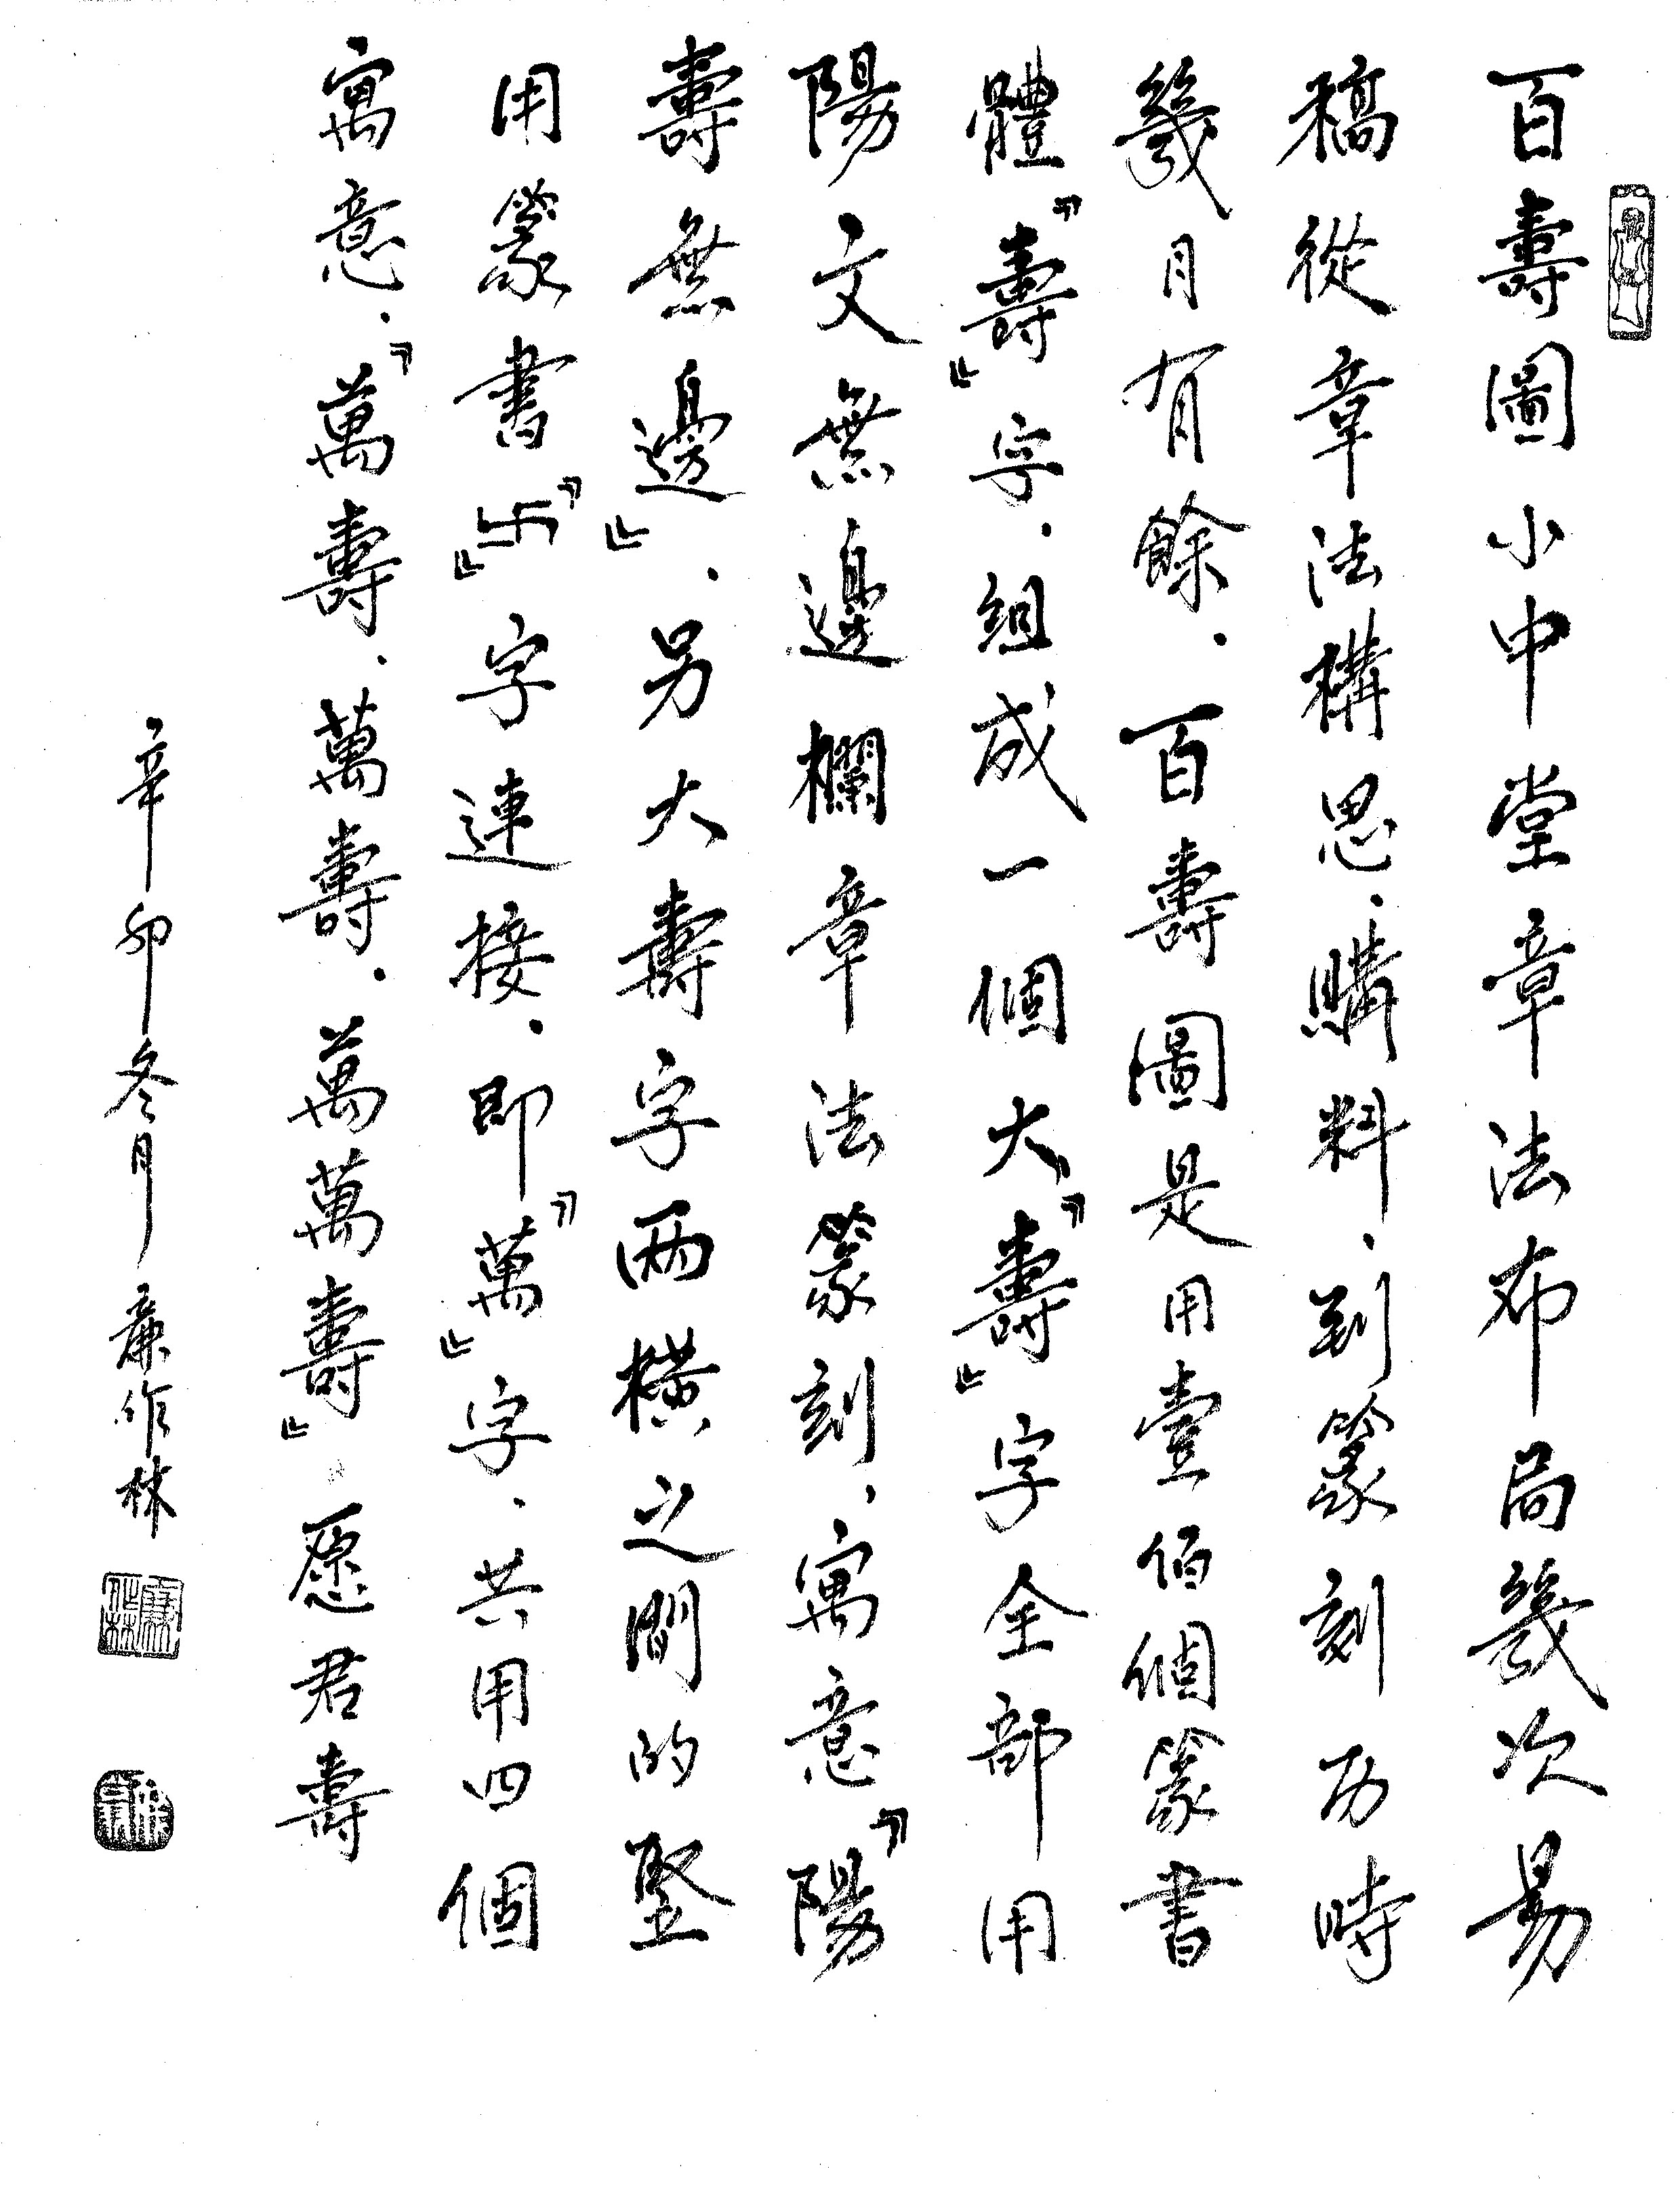 百壽圖小中堂章法布局幾次易
稿從章法構思、購料、到篆刻歷時
幾月有餘．百壽圖是用壹佰個篆書
體『壽』字．組成一個大『壽』字全部用
陽文無邊欄章法篆刻、寓意『陽
壽無邊』．另大壽字兩橫之間的竪
用篆書『卐』字連接．即『萬』字．共用四個
寓意．『萬壽．萬壽．萬萬壽』愿君壽
辛卯冬月 廉作林